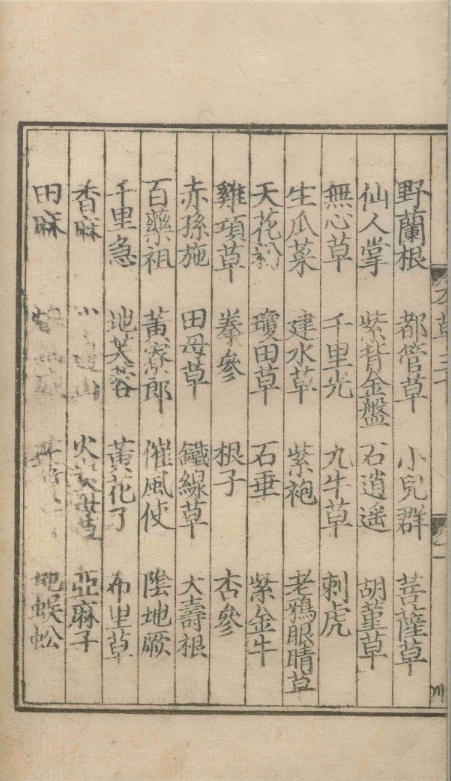 野蘭根 都管草 小兒群 菩薩草
仙人掌 紫背金盤 石逍遥 胡堇草
無心草 千里光 九牛草 刺虎
生瓜菜 建水草 紫袍 老鴉眼睛草
天花粉 瓊田草 石垂 紫金牛
雞項草 拳參 根子 杏參
赤孫施 田母草 鐵線草 大壽根
百藥祖 黃寮郎 催風使 陰地厥
千里急 地芙蓉 黃花了 布里草
香麻 火炭母草 亞麻子
田麻 地蜈蚣